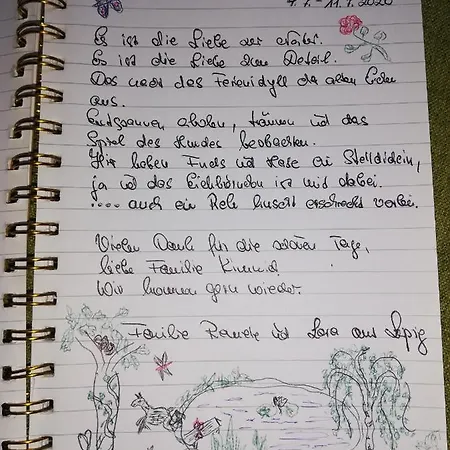 4.7. - 11.7.2020
Es ist die Liebe der Natur.
Es ist die Liebe zum Detail.
Das macht das Ferienidyll der alten Eichen
aus.
Entspannen, träumen und das
Spiel des Hundes beobachten.
Wir haben Fuchs und Hase ein Stelldichein,
ja und das Eichhörnchen ist mit dabei.
.... auch ein Reh huscht erschreckt vorbei.
Vielen Dank für die schönen Tage,
liebe Familie
Wir kommen gern wieder.
Familie und aus